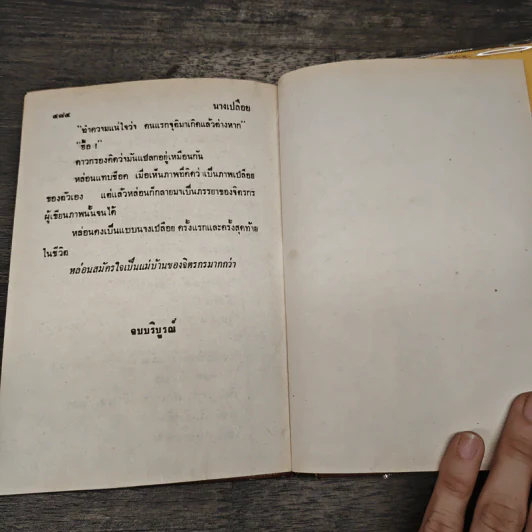 ๔๗๔ นางเปลือย
"ทำความแน่ใจว่า คนแรกจุติมาเกิดแล้วต่างหาก"
"อื้อ !
ดาวกรองคิดว่ามันแปลกอยู่เหมือนกัน
หล่อนแทบช็อค เมื่อเห็นภาพที่คิดว่าเป็นภาพเปลือย
ของตัวเอง แต่แล้วหล่อนก็กลายมาเป็นภรรยาของจิตรกร
ผู้เขียนภาพนั้นจนได้
หล่อนคงเป็นแบบนางเปลือย ครั้งแรกและครั้งสุดท้าย
ในชีวิต
หล่อนสมัครใจเป็นแม่บ้านของจิตรกรมากกว่า
จบบริบูรณ์